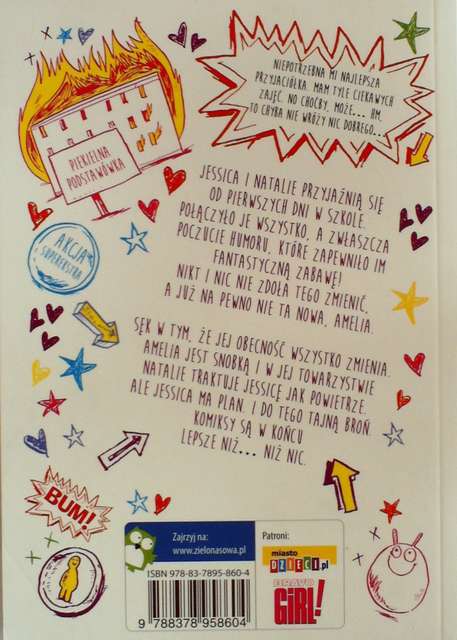 NIEPOTRZEBNA MI NAJLEPSZA
PRZYJACIÓŁKA. MAM TYLE CIEKAWYCH
ZAJĘĆ. NO CHOĆBY, MOŻE... HM,
TO CHYBA NIE WRÓŻY NIC DOBREGO...
PIEKIELNA
PODSTAWÓWKA
JESSICA I NATALIE PRZYJAŹNIĄ SIĘ
OD PIERWSZYCH DNI W SZKOLE.
POŁĄCZYŁO JE WSZYSTKO, A ZWŁASZCZA
POCZUCIE HUMORU, KTÓRE ZAPEWNIŁO IM
FANTASTYCZNĄ ZABAWĘ!
NIKT I NIC NIE ZDOŁA TEGO ZMIENIĆ,
A JUŻ NA PEWNO NIE TA NOWA, AMELIA.
AKCJA
SUPEREKSTRA
SĘK W TYM, ŻE JEJ OBECNOŚĆ WSZYSTKO ZMIENIA.
AMELIA JEST SNOBKĄ I W JEJ TOWARZYSTWIE
NATALIE TRAKTUJE JESSICĘ JAK POWIETRZE.
ALE JESSICA MA PLAN. I DO TEGO TAJNĄ BROŃ.
KOMIKSY SĄ W KOŃCU
LEPSZE NIŻ... NIŻ NIC.
BUM!
Zajrzyj na:
www.zielonasowa.pl
Patroni:
miasto
DZIECI.pl
BRAVO
GiRL!
ISBN 978-83-7895-860-4
9 788378 958604